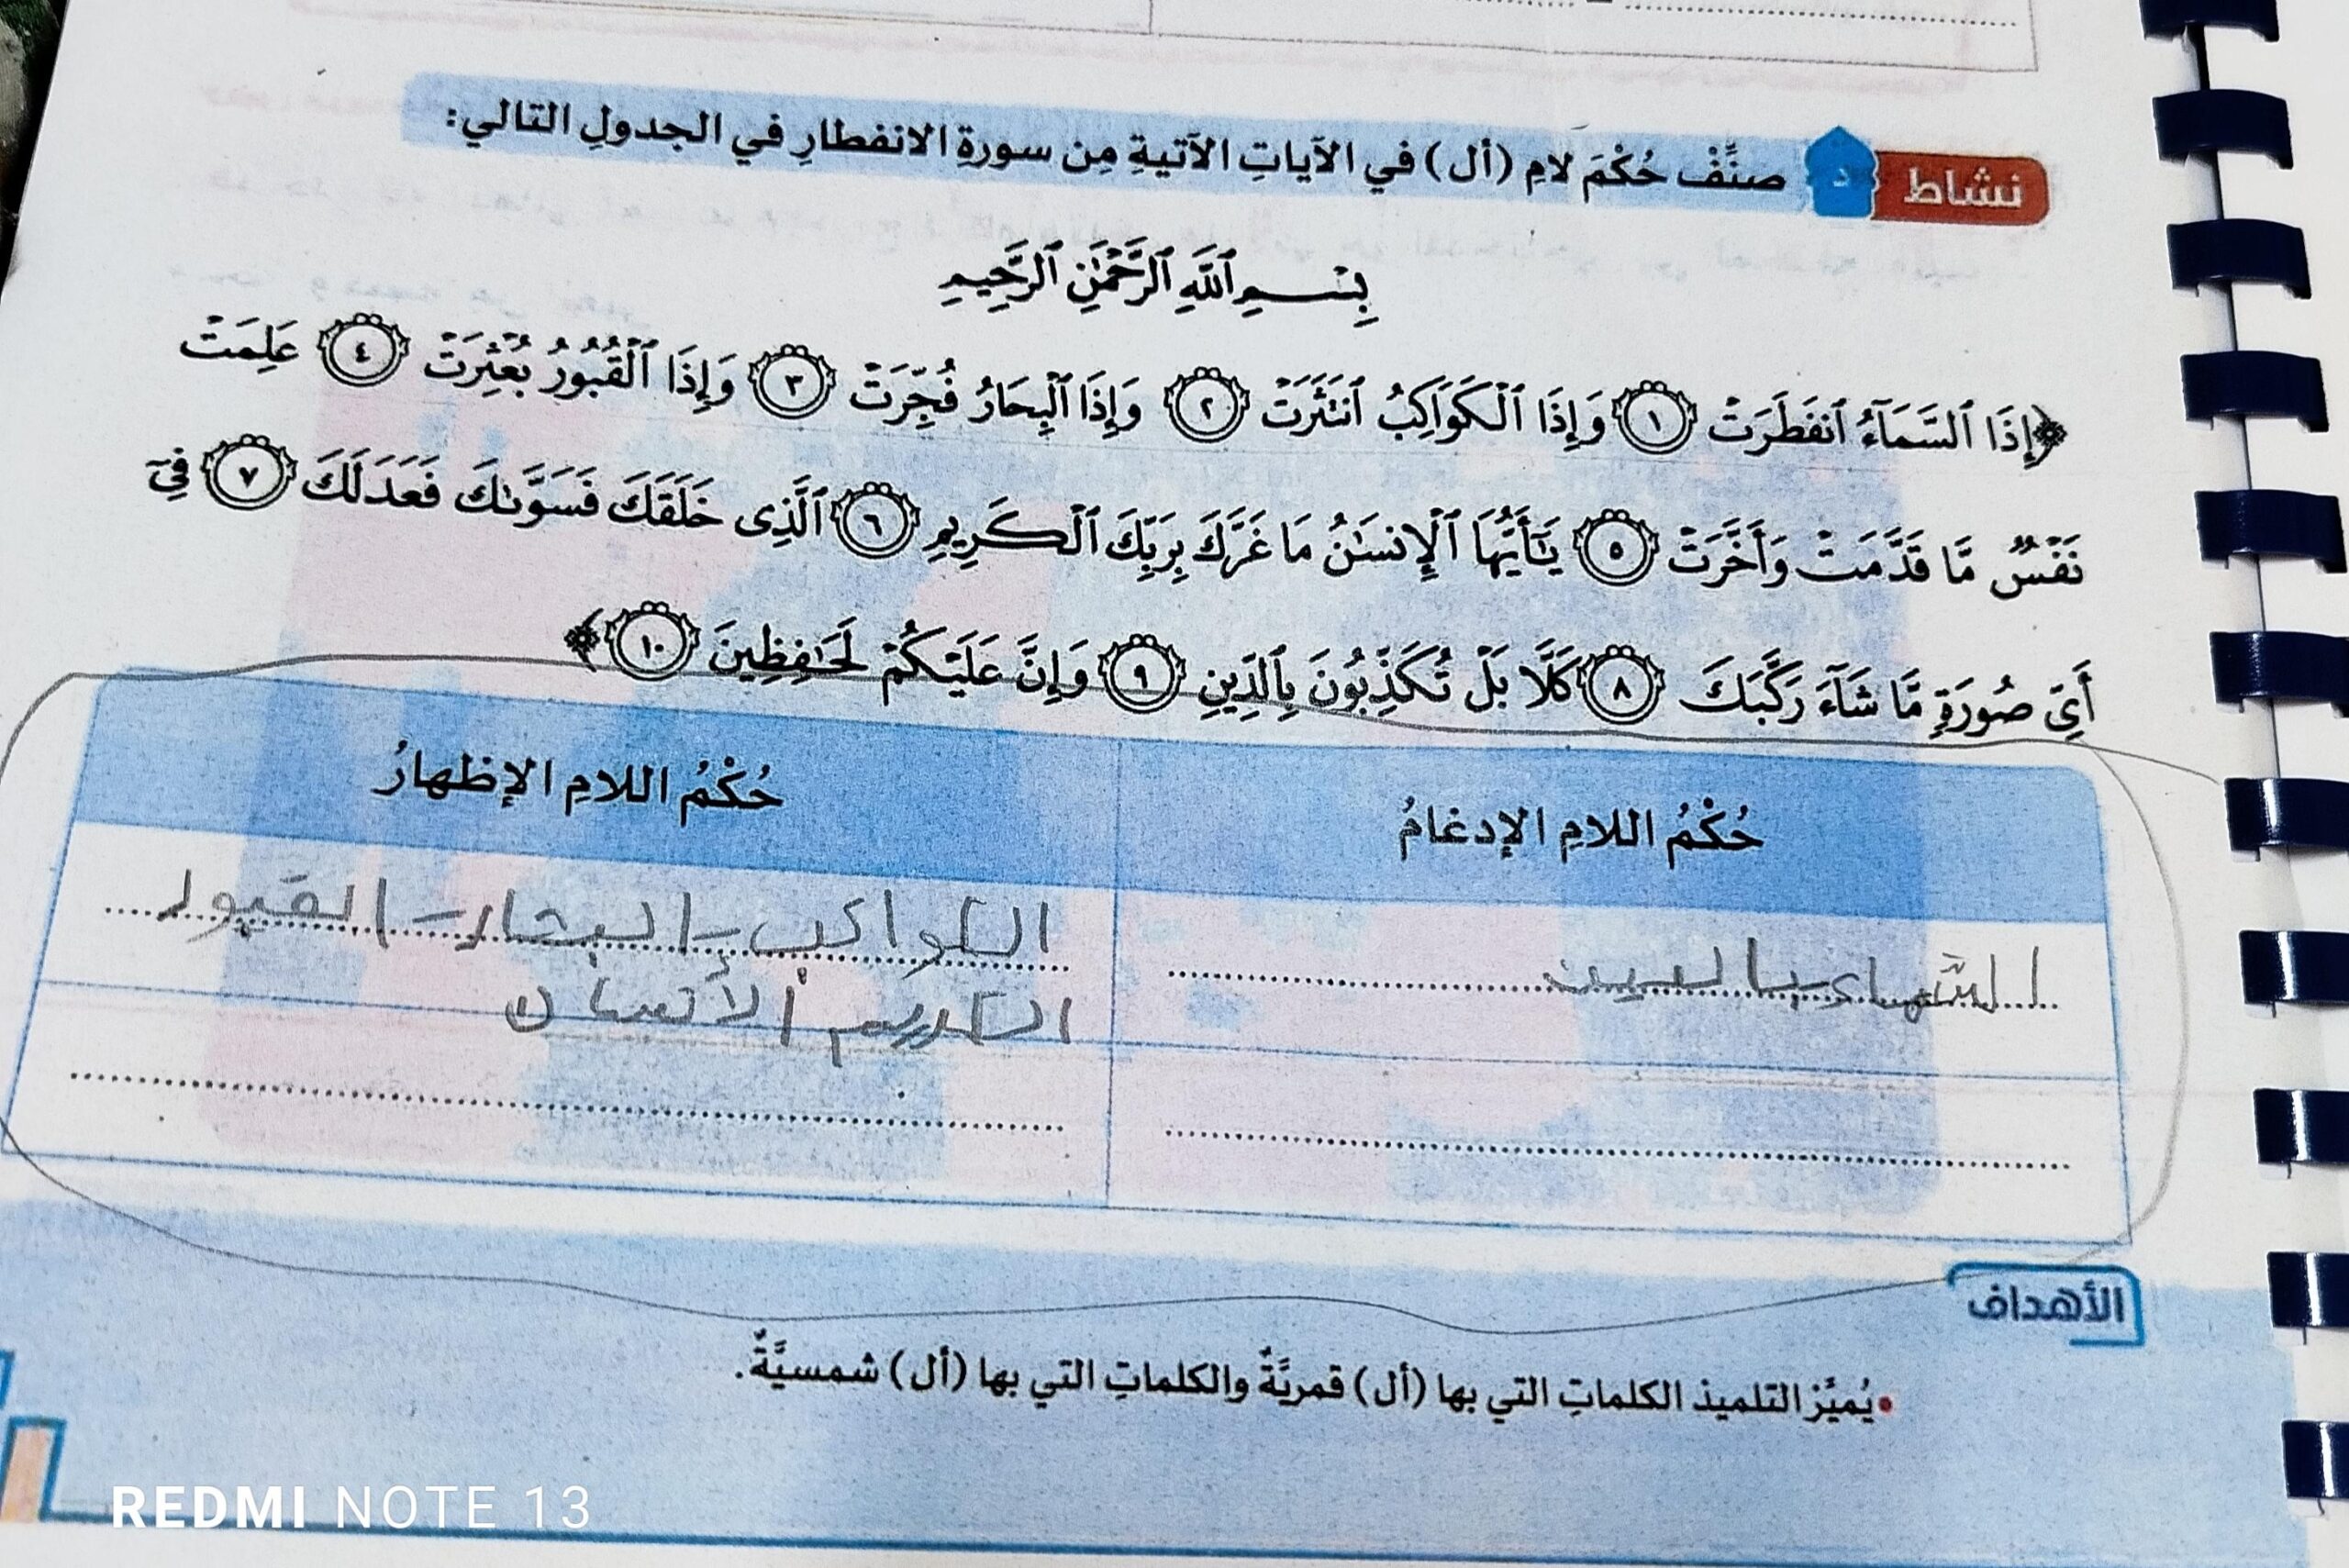 نشاط د صنِّفْ حُكْمَ لامِ (أل) في الآياتِ الآتيةِ مِن سورةِ الانفطارِ في الجدولِ التالي:
بِسْمِ ٱللَّهِ ٱلرَّحْمَٰنِ ٱلرَّحِيمِ
﴿إِذَا ٱلسَّمَآءُ ٱنفَطَرَتْ ١ وَإِذَا ٱلْكَوَاكِبُ ٱنتَثَرَتْ ٢ وَإِذَا ٱلْبِحَارُ فُجِّرَتْ ٣ وَإِذَا ٱلْقُبُورُ بُعْثِرَتْ ٤ عَلِمَتْ
نَفْسٌ مَّا قَدَّمَتْ وَأَخَّرَتْ ٥ يَٰٓأَيُّهَا ٱلْإِنسَٰنُ مَا غَرَّكَ بِرَبِّكَ ٱلْكَرِيمِ ٦ ٱلَّذِى خَلَقَكَ فَسَوَّىٰكَ فَعَدَلَكَ ٧ فِىٓ
أَىِّ صُورَةٍ مَّا شَآءَ رَكَّبَكَ ٨ كَلَّا بَلْ تُكَذِّبُونَ بِٱلدِّينِ ٩ وَإِنَّ عَلَيْكُمْ لَحَٰفِظِينَ ١٠﴾
حُكْمُ اللامِ الإدغامُ
حُكْمُ اللامِ الإظهارُ
الكواكب - البحار - القبور
الكريم الأنسان
الأهداف
• يُميِّز التلميذ الكلماتِ التي بها (أل) قمريَّةٌ والكلماتِ التي بها (أل) شمسيَّةٌ.
REDMI NOTE 13